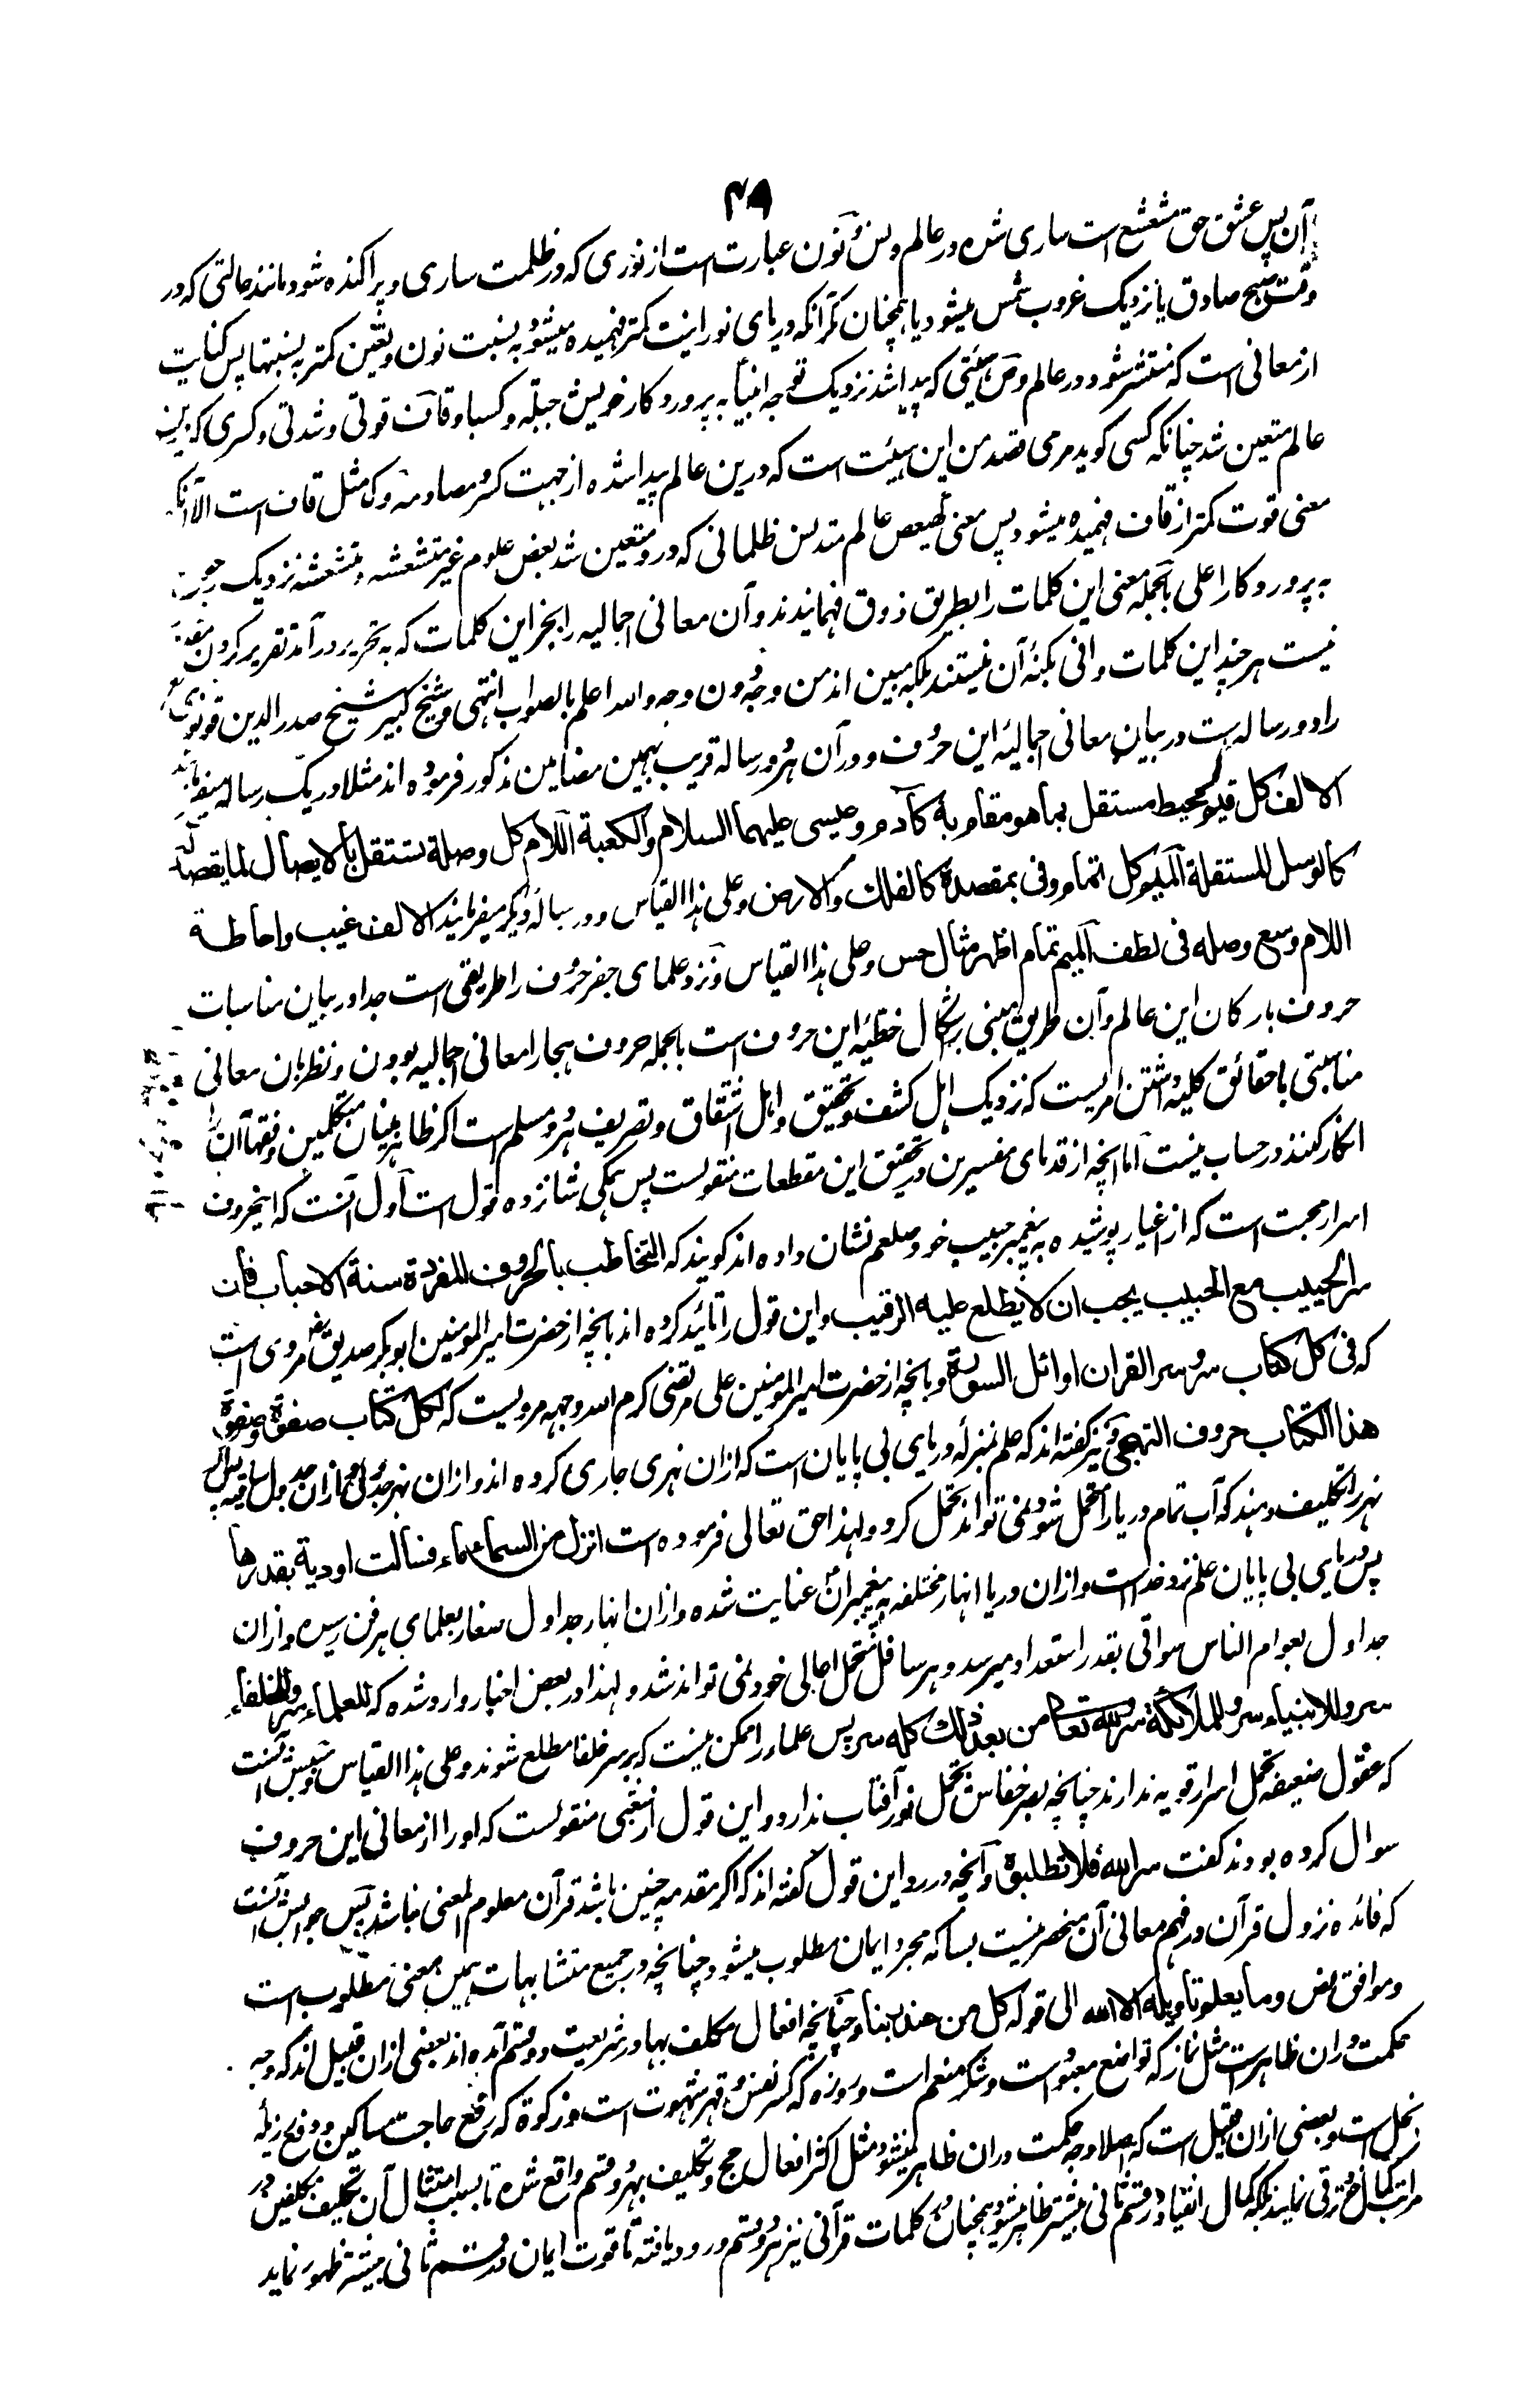 ۴۹
آن پس عشق حق متشعشع است ساری شده در عالم و ن و نون عبارت است از نوری که در ظلمت ساری و پراکنده شود مانند حالتی که در
وقت صبح صادق یا نزدیک غروب شمس میشود یا همچنان مگر آنکه در یای نورانیت کمتر فهمیده میشود به نسبت نون و تعین کمتر به نسبتها پس کنایت
از معانی است که منتشر شود در عالم و ص هیئتی که پیدا شد نزدیک توجه انبیا به پروردگار خویش جبلة و کسبا و قاف قوتی و شدتی و کسری که درین
عالم متعین شد چنانکه کسی گوید مرمی قصد من این هیئت است که درین عالم پیدا شده از جهت کسر و مصادمه و ک مثل قاف است الا آنکه
معنی قوت کمتر از قاف فهمیده میشود پس معنی کهیعص عالم متدنس ظلمانی که درو متعین شد بعض علوم غیر متشعشعه و متشعشعه نزدیک رجوع
به پروردگار اعلی بالجمله معنی این کلمات را بطریق ذوق فهمانیدند و آن معانی اجمالیه را بجز این کلمات که به تحریر درآمد تقریر کردن مقدور
نیست هر چند این کلمات وافی بکنه آن نیستند بلکه مبین اند من وجه دون وجه والله اعلم بالصواب انتهی و شیخ کبیر شیخ صدر الدین قونوی
را دو رساله است در بیان معانی اجمالیه این حروف و در آن هر دو رساله قریب بهمین مضامین مذکور فرموده اند مثلا در یک رساله میفرمایند
الالف کل قیوم محیط مستقل بما هو مقام به کآدم و عیسی علیهما السلام والکعبة اللام کل وصلة تستقل بالایصال لما یقصد له
کالوسل المستقلة المیم کل تمام وفی بمقصده کالفلک والارض و علی هذا القیاس و در رساله دیگر میفرمایند الالف غیب واحاطة
اللام وسع وصله فی لطف المیم تمام اظهر مثال حس وعلی هذا القیاس و نزد علمای جفر حروف را طریقی است جدا در بیان مناسبات
حروف بارکان این عالم و آن طریق مبنی بر اشکال خطیه این حروف است بالجمله حروف هجا را معانی اجمالیه بودن و نظر بان معانی
مناسبتی با حقائق کلیه داشتن امریست که نزدیک اهل کشف و تحقیق و اهل اشتقاق و تصریف هر دو مسلم است اگر ظاهر بینان متکلمین و فقها آن را
انکار کنند در حساب نیست اما آنچه از قدمای مفسرین در تحقیق این مقطعات منقولست پس همگی شانزده قول است اول آنست که این حروف
اسرار محبت است که از اغیار پوشیده به پیغمبر حبیب خود صلعم نشان داده اند گویند که التخاطب بالحروف المفردة سنة الاحباب فان
سر الحبیب مع الحبیب یجب ان لا یطلع علیه الرقیب و این قول را تائید کرده اند بانچه از حضرت امیر المومنین ابوبکر صدیق رض مروی است
که فی کل کتاب سر و سر القران اوائل السورة و بانچه از حضرت امیر المومنین علی مرتضی کرم الله وجهه مرویست که لکل کتاب صفوة وصفوة
هذا الکتاب حروف التهجی و نیز گفته اند که علم بمنزله دریای بی پایان است که ازان نهری جاری کرده اند و ازان نهر جدولی و ازان جدول ساقیه پس اگر
نهر را تکلیف دهند که آب تمام دریا را متحمل شود نمی تواند تحمل کرد و لهذا حق تعالی فرموده است انزل من السماء ماء فسالت اودیة بقدرها
پس دریای بی پایان علم نزد خداست و ازان دریا انهار مختلفه به پیغمبران عنایت شده و ازان انهار جداول صغار بعلمای هر فن رسیده و ازان
جداول بعوام الناس سواقی بقدر استعداد میرسد و هر سافل متحمل اعالی خود نمی تواند شد و لهذا در بعض اخبار وارد شده که للعلماء سر وللخلفاء
سر وللانبیاء سر وللملائکة سر ولله تعالی من بعد ذلک کله سر پس علماء را ممکن نیست که بر سر خلفا مطلع شوند و علی هذا القیاس و سببش آنست
که عقول ضعیفه تحمل اسرار قویه ندارند چنانچه بصر خفاش تحمل نور آفتاب ندارد و این قول از شعبی منقولست که او را از معانی این حروف
سوال کرده بودند گفت سر الله فلا تطلبوه و آنچه در رد این قول گفته اند که اگر مقدمه چنین باشد قرآن معلوم المعنی نباشد پس جوابش آنست
که فائده نزول قرآن در فهم معانی آن منحصر نیست بسا که مجرد ایمان مطلوب میشود چنانچه در جمیع متشابهات همین معنی مطلوب است
و موافق نص وما یعلم تاویله الا الله الی قوله کل من عند ربنا و چنانچه افعال مکلف بها در شریعت دو قسم آمده اند بعضی ازان قبیل اند که وجه
حکمت دران ظاهر است مثل نماز که تواضع معبود است و شکر منعم است و روزه که کسر نفس و قهر شهوت است و زکوة که رفع حاجت مساکین و دفع رذیله
بخل است و بعضی ازان قبیل است که اصلا وجه حکمت دران ظاهر نمیشود مثل اکثر افعال حج و تکلیف بهر دو قسم واقع شده تا بسبب امتثال آن تکلیف مکلفین در
مراتب کمال خود ترقی نمایند بلکه کمال انقیاد در قسم ثانی بیشتر ظاهر میشود همچنان کلمات قرآنی نیز بر دو قسم ورود یافته تا قوت ایمان در قسم ثانی بیشتر ظهور نماید